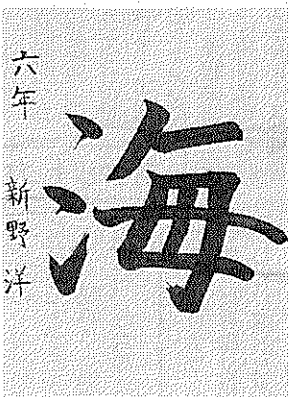 海
六年 新野洋